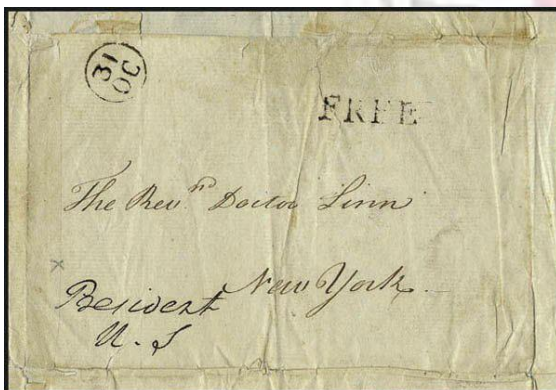 31
OC
FREE
The Revnd Doctor Linn
New York.
President
U. S